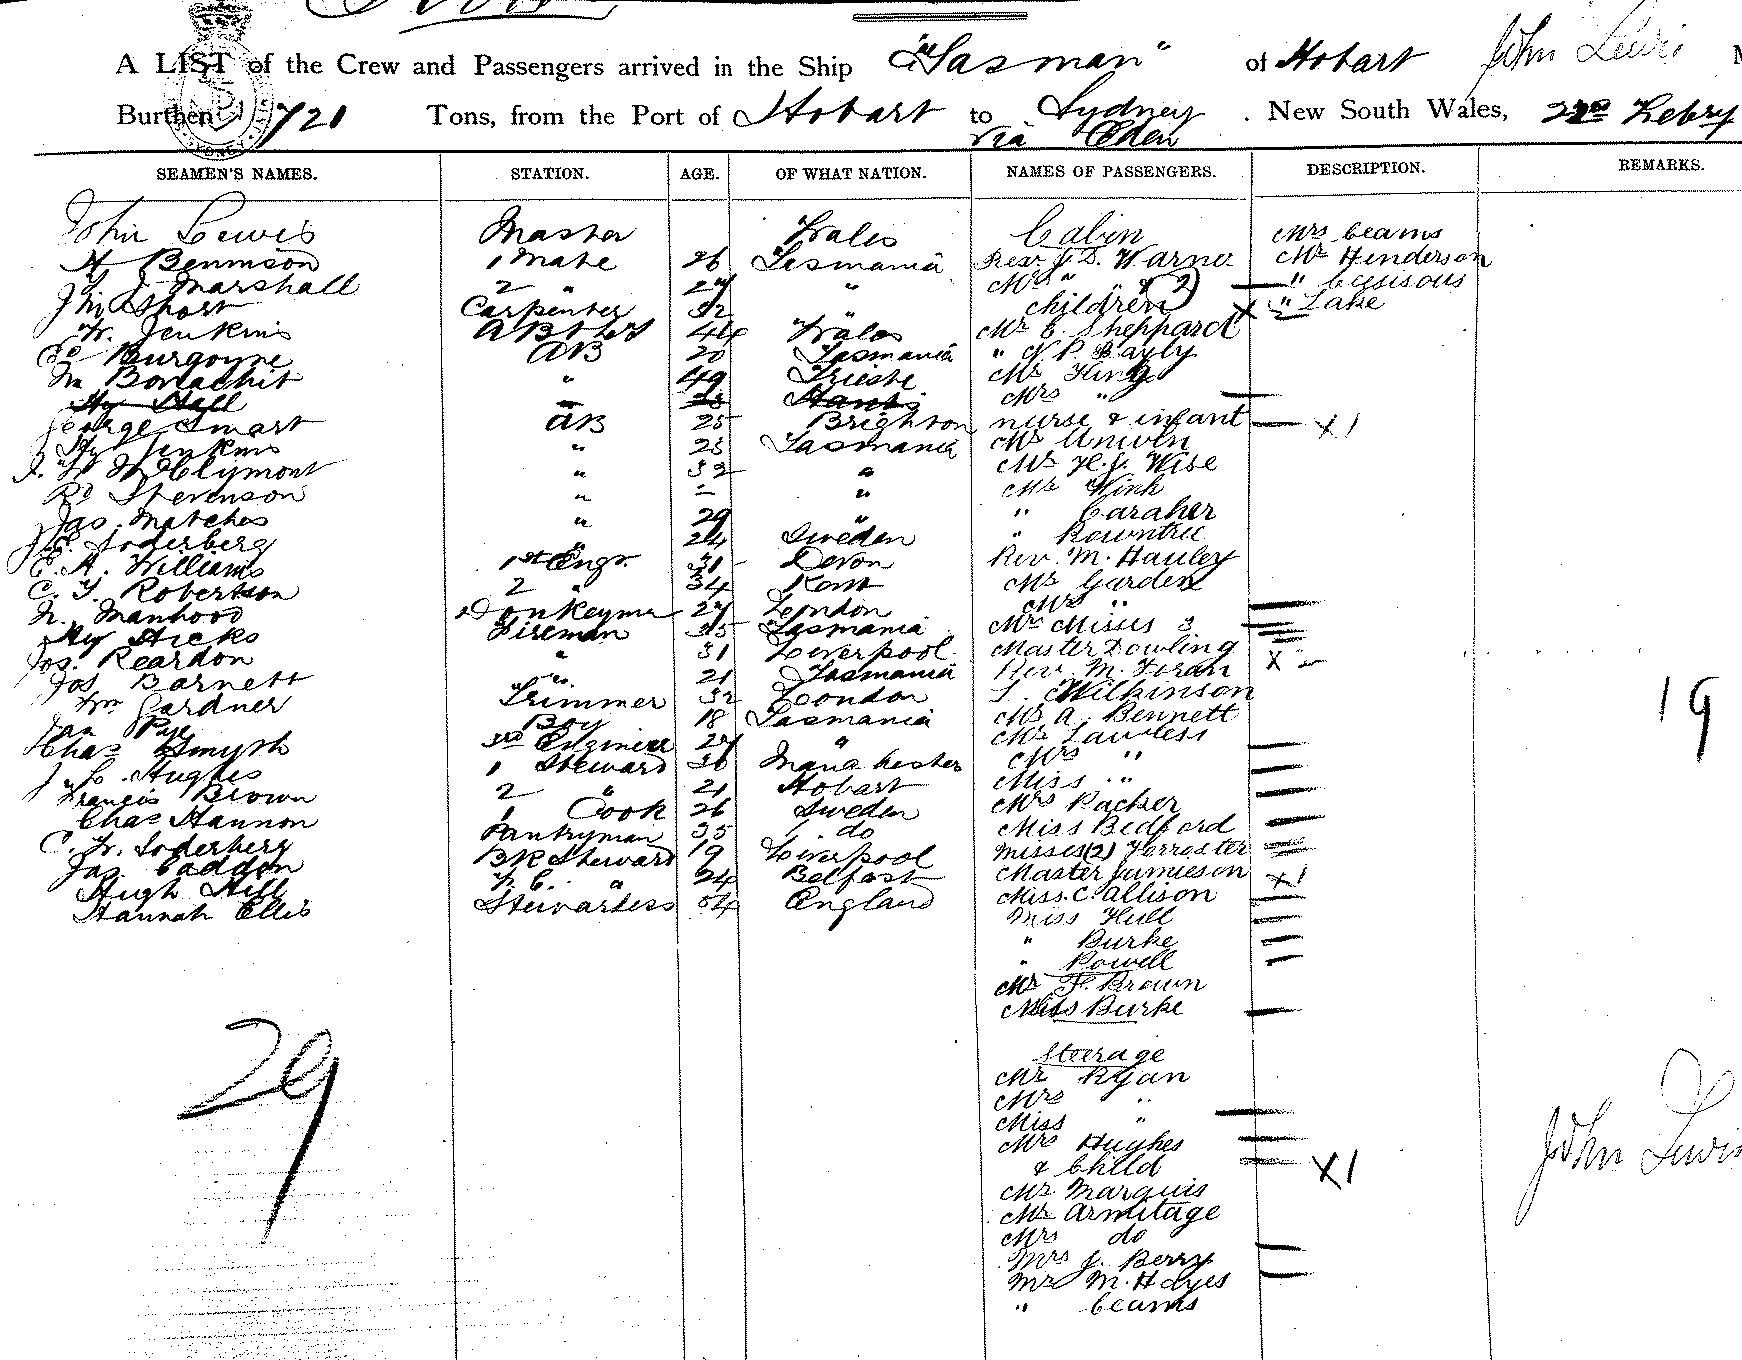 A LIST of the Crew and Passengers arrived in the Ship "Tasman" of Hobart John Lewis
Burthen 721 Tons, from the Port of Hobart to Sydney New South Wales, 22nd Febry
via Eden
SEAMEN'S NAMES. STATION. AGE. OF WHAT NATION. NAMES OF PASSENGERS. DESCRIPTION. REMARKS.
John Lewis Master Wales
A Bennison 1 Mate 26 Tasmania
Marshall 2 " 27 "
Short Carpenter 32
W. Jenkins AB 44 Wales
Burgoyne AB 20 Tasmania
" 49 Trieste
Hy Hall
George Smart AB 25 Brighton
Hy Jenkins " 23 Tasmania
McClymont " 32 "
Rd Stevenson " "
Jas. Matches " 29 "
Soderberg " 24 Sweden
E. A. Williams 1st Engr. 31 Devon
C. J. Robertson 2 " 34 Kent
N. Manhood Donkeyman 27 London
Hy Hicks Fireman 35 Tasmania
Jos. Reardon " 31 Liverpool
Jas Barnett " 21 Tasmania
Wm Gardner Trimmer 32 London
Pye Boy 18 Tasmania
Chas Smyth 3rd Engineer 27 "
Hughes 1 Steward 36 Manchester
Francis Brown 2 " 21 Hobart
Chas Hannon 1 Cook 26 Sweden
C. W. Soderberg Pantryman 35 do
Jas. Caddon BR Steward 19 Liverpool
Hugh Hill F. C. " 24 Belfast
Hannah Ellis Stewardess 54 England
29
Cabin
Rev J. S. Warne
Mrs " & 2
children
Mr C. Sheppard
" N. P. Bayly
Mr King
Mrs "
nurse & infant
Mr Unwin
Mr H. J. Wise
Mr Wink
" Caraher
" Rowntree
Rev. M. Hauley
Mr Garden
Mrs "
Misses 3
Master Dowling
Rev. M. Foran
J. Wilkinson
Mr A. Bennett
Mr Lawless
Mrs "
Miss "
Mrs Packer
Miss Bedford
Misses (2) Forrester
Master Jamieson
Miss C. Allison
Miss Hull
" Burke
" Powell
Mr F. Brown
Miss Burke
Steerage
Mr Ryan
Mrs "
Miss "
Mrs Hughes
& Child
Mr Marquis
Mr Armitage
Mrs do
Mrs J. Berry
Mr M. Hayes
" beams
Mrs beams
Mr Henderson
" Lake
X 1
X
X 1
X 1
19
John Lewis